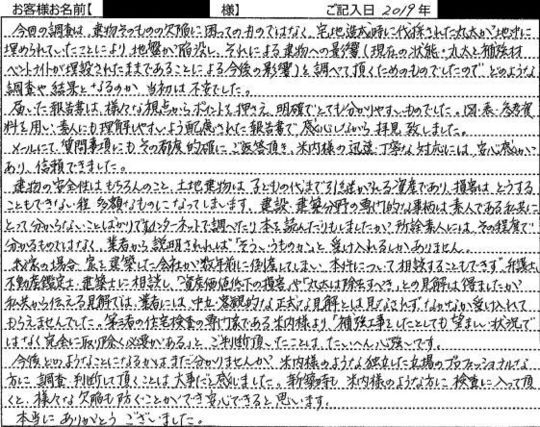 お客様お名前【 様】 ご記入日 2019年
今回の調査は、建物そのものの欠陥に困ってのものではなく、宅地造成時に伐採された丸太が地中に
埋められていたことにより、地盤が陥没し、それによる建物への影響(現在の状態・丸太と補強材
ベントナイトが埋設されたままであることによる今後の影響)を調べて頂くためのものでしたので、どのような
調査や結果となるのか、当初は不安でした。
届いた報告書は、様々な視点からポイントを押さえ、明確でとても分かりやすいものでした。図・表・参考資
料を用い、素人にも理解しやすいよう配慮された報告書で、感心しながら拝見致しました。
メールにて質問事項にもその都度的確にご返答頂き、米内様の迅速・丁寧な対応には、安心感が
あり、信頼できました。
建物の安全性はもちろんのこと、土地建物は、子どもの代まで引き継がれる資産であり、損害は、どうする
こともできない程多額なものになってしまいます。建設・建築分野の専門的な事柄は素人である私共に
とって分からないことばかりで、インターネットで調べたり、本を読んだりもしましたが、所詮素人には、その程度で
分かるものではなく、業者から説明されれば"そういうものか"と受け入れるしかありません。
我家の場合、家を建築した会社が数年前に倒産してしまい、本件について相談することもできず、弁護士、
不動産鑑定士・建築士に相談し、「資産価値低下の損害」や「丸太は除去すべき」との見解は得ましたが、
私共から伝える見解では、業者には、中立・客観的な正式な見解とは見なされず、なかなか受け入れて
もらえませんでした。第三者の住宅検査の専門家である米内様より「補強工事をしたとしても望ましい状況で
はなく完全に取り除く必要がある」と、ご判断頂いたことは、たいへん心強いです。
今後どのようなことになるかはまだ分かりませんが、米内様のような独立した立場のプロフェッショナルな
方に調査、判断して頂くことは大事だと感じました。新築時も米内様のような方に検査に入って頂
くと、様々な欠陥も防ぐことができ安心できると思います。
本当にありがとうございました。